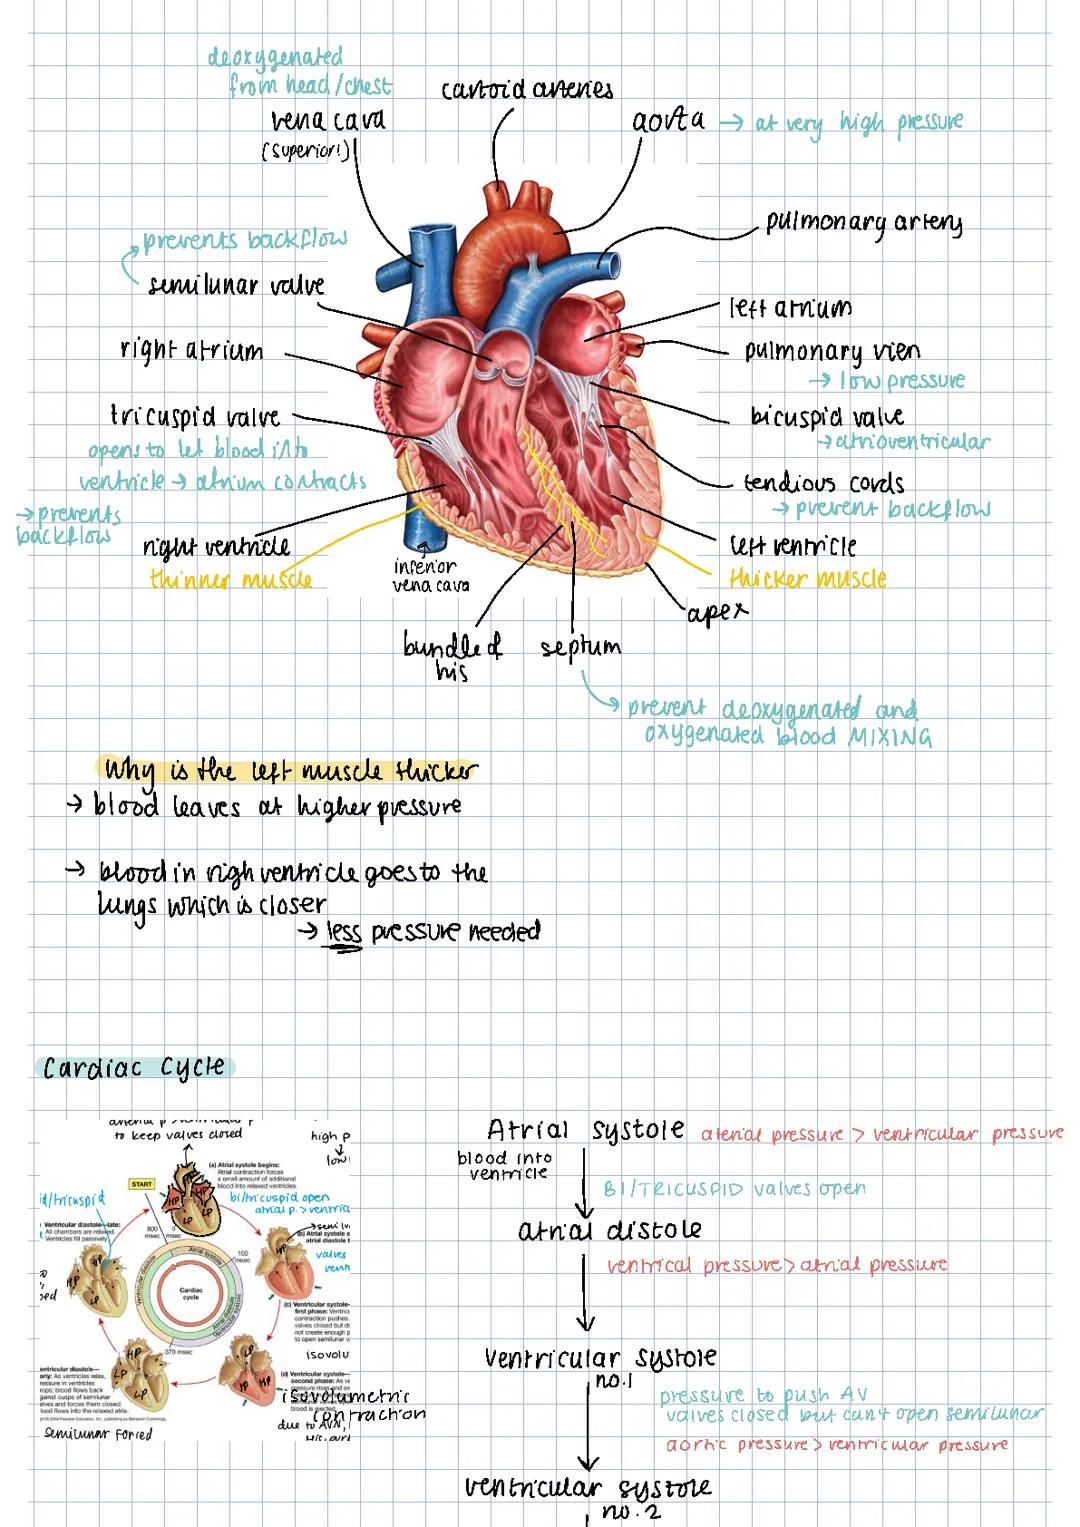 deoxygenated
from head/chest
vena cava
(superior!)
carotoid arteries
aorta → at very high pressure
pulmonary artery
prevents backflow
semilunar valve
left atrium
right atrium
pulmonary vien
→ low pressure
tricuspid valve
bicuspid valve
→ atrioventricular
opens to let blood into
ventricle → atrium contracts
→ prevents
backflow
tendious cords
→ prevent backflow
right ventricle
thinner muscle
inferior
vena cava
left ventricle
thicker muscle
apex
bundle of
his
septum
→ prevent deoxygenated and
oxygenated blood MIXING
Why is the left muscle thicker
→ blood leaves at higher pressure
→ blood in righ ventricle goes to the
lungs which is closer
→ less pressure needed
Cardiac Cycle
to keep valves closed
high p
low
(a) Atrial systole begins:
Atrial contraction forces
a small amount of additional
blood into relaxed ventricles.
START
bi/tricuspid open
atrial p. > ventric
id/tricuspid
Ventricular diastole—late:
All chambers are relaxed.
Ventricles fill passively.
HP HP
LP LP
800
msec
0
msec
100
msec
Atrial systole
Ventricular diastole
Atrial diastole
Ventricular systole
Cardiac
cycle
370 msec
→ semi
(b) Atrial systole
atrial diastole
valves
HP
HP
HP
LP
(c) Ventricular systole—
first phase:
contraction pushes
valves closed but
not create enough
to open semilunar
isovolu
(d) Ventricular systole—
second phase:
LP
HP HP
HP
LP
LP
LP
entricular diastole—
arly: As ventricles relax,
ressure in ventricles
rops; blood flows back
gainst cusps of semilunar
alves and forces them closed.
lood flows into the relaxed atria.
semilunar forced
isovolumetric
contraction
due to AVN,
Atrial systole aterial pressure > ventricular pressure
blood into
ventricle
BI/TRICUSPID valves open
atrial distole
ventrical pressure > atrial pressure
ventricular systole
no.1
pressure to push AV
valves closed but can't open semilunar
aortic pressure > ventricular pressure
ventricular systole
no.2